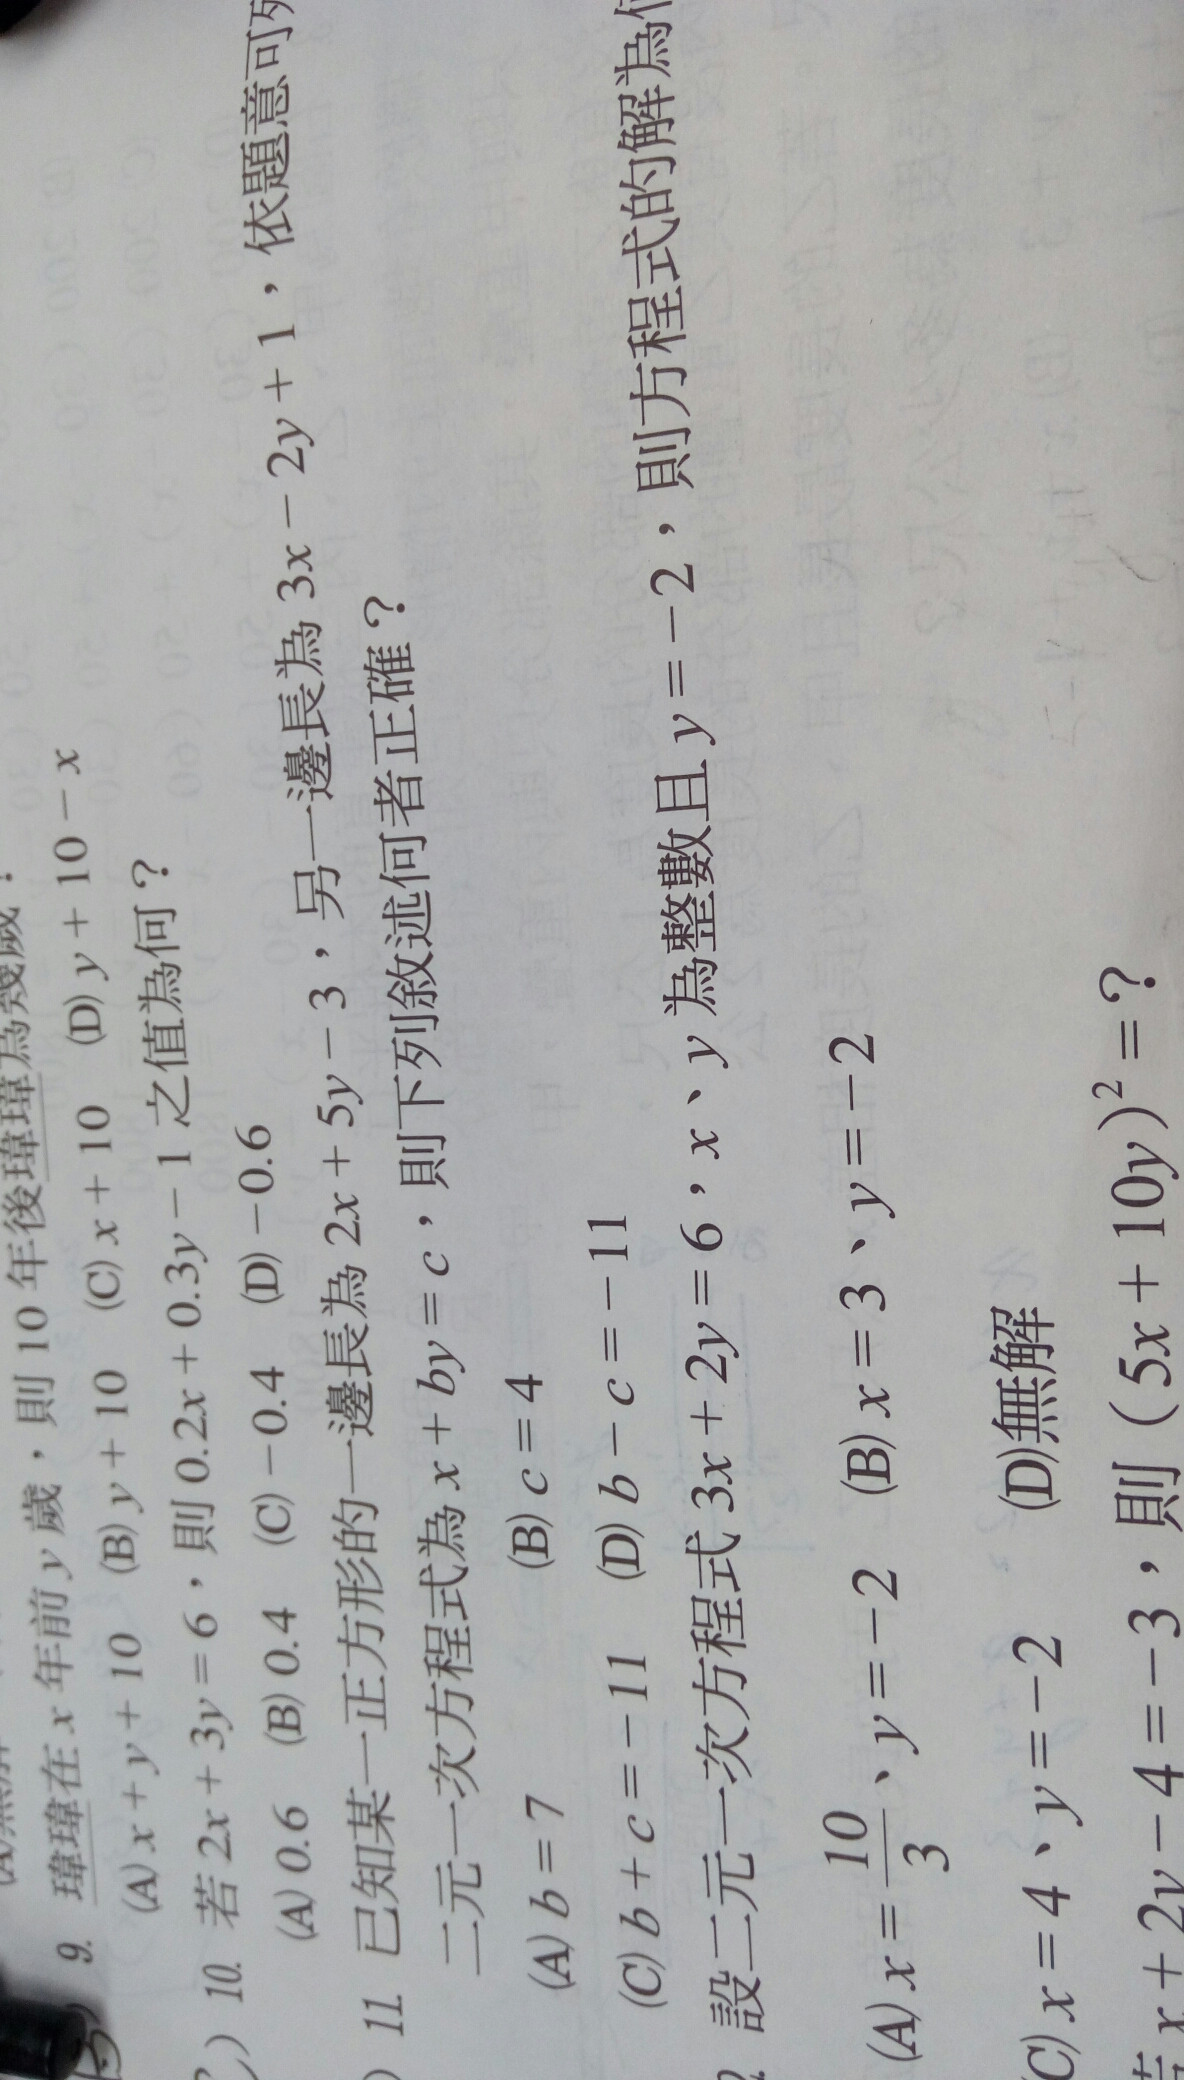 9. 瑋瑋在 x 年前 y 歲，則 10 年後瑋瑋為幾歲？
(A) x + y + 10 (B) y + 10 (C) x + 10 (D) y + 10 − x
) 10. 若 2x + 3y = 6，則 0.2x + 0.3y − 1 之值為何？
(A) 0.6 (B) 0.4 (C) −0.4 (D) −0.6
) 11. 已知某一正方形的一邊長為 2x + 5y − 3，另一邊長為 3x − 2y + 1，依題意可
二元一次方程式為 x + by = c，則下列敘述何者正確？
(A) b = 7 (B) c = 4
(C) b + c = −11 (D) b − c = −11
設二元一次方程式 3x + 2y = 6，x、y 為整數且 y = −2，則方程式的解為
(A) x = 10/3、y = −2 (B) x = 3、y = −2
(C) x = 4、y = −2 (D)無解
若 x + 2y − 4 = −3，則 (5x + 10y)² = ？